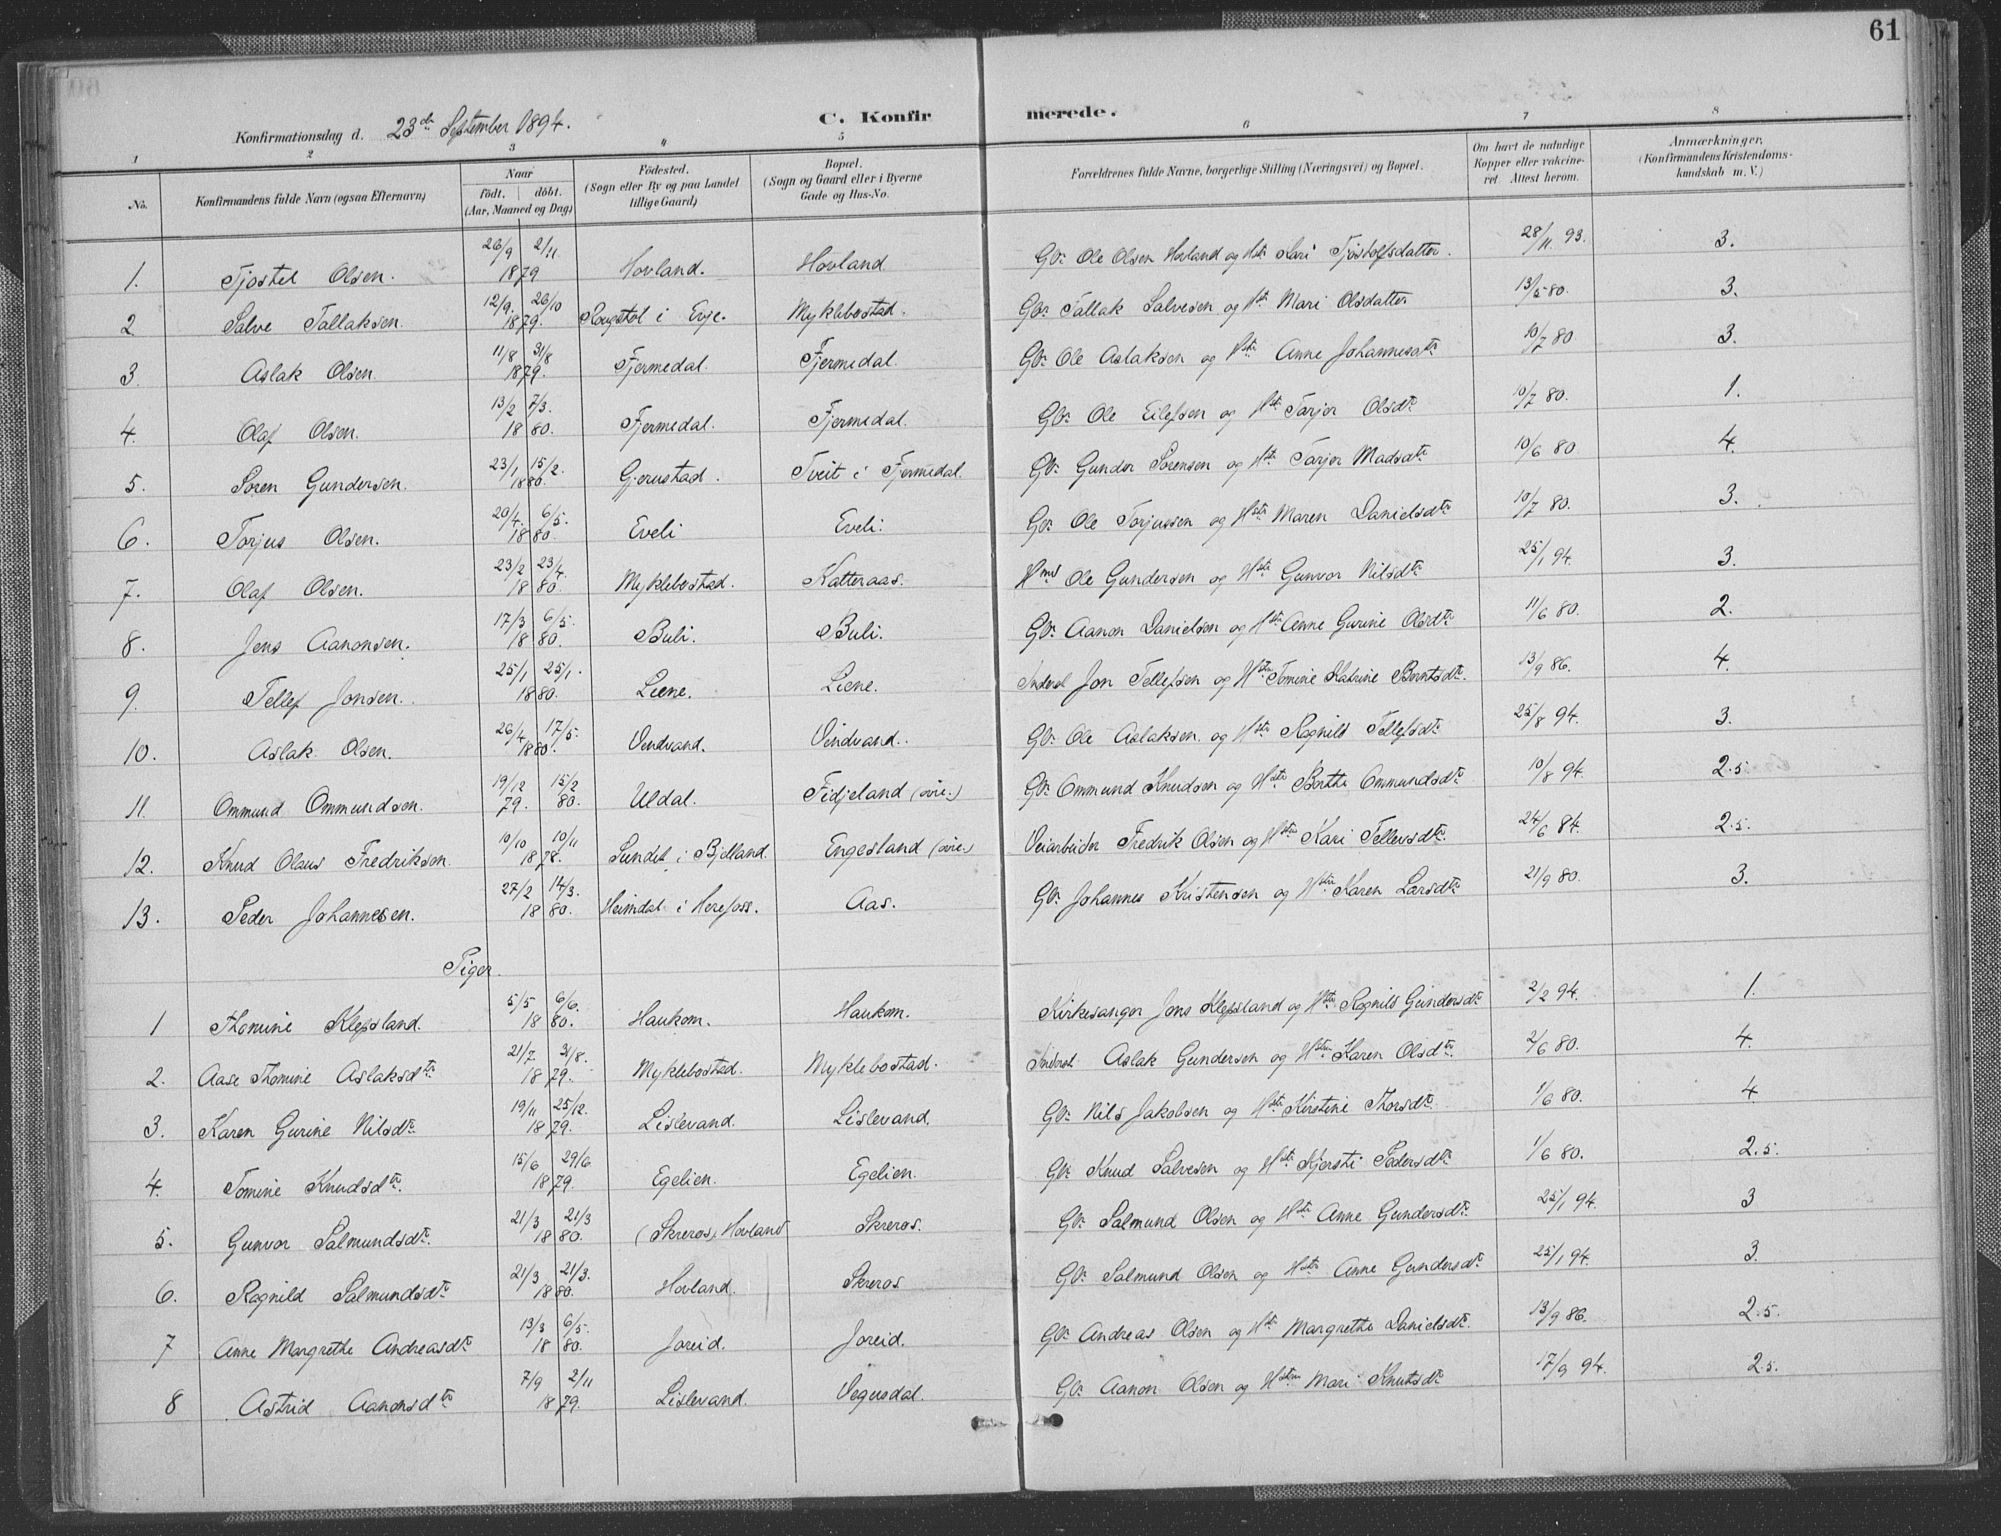 61
Konfirmationsdag d. 23de September 1894. C. Konfirmerede.
1 2 3 4 5 6 7 8
No. Konfirmandens fulde Navn (ogsaa Efternavn) Naar födt. döbt. (Aar, Maaned og Dag) Födested. (Sogn eller By og paa Landet tillige Gaard) Bopæl. (Sogn og Gaard eller i Byerne Gade og Hus-No. Forældrenes fulde Navne, borgerlige Stilling (Næringsvei) og Bopæl. Om havt de naturlige Kopper eller vakcineret. Attest herom. Anmærkninger, (Konfirmandens Kristendomskundskab m. V.)
1. Tjostel Olsen. 26/9 2/11 1879 Hovland. Hovland Gbr. Ole Olsen Hovland og Hstr Kari Tjostolfsdatter. 28/11 93. 3.
2 Salve Tallaksen. 12/9. 26/10 1879. i Evje. Myklebostad. Gbr. Tallak Salvesen og Hstr Mari Olsdatter 13/5 80. 3.
3 Aslak Olsen. 11/8 31/8 1879. Fjermedal. Fjermedal. Gbr. Ole Aslaksen og Hstr Anne Johannesdtr 10/7 80 3.
4. Olaf Olsen. 13/2 7/3. 1880. Fjermedal. Fjermedal. Gbr. Ole Eilefsen og Hstr Torjer Olsdtr 10/7 80. 1.
5. Soren Gundersen. 23/1 15/2. 1880. Gjerustad. Tveit i Fjermedal. Gbr. Gunder Sorensen og Hstr Torjer Madsdtr 10/6 80 4.
6. Torjus Olsen. 20/4. 6/5. 1880. Eveli Eveli. Gbr. Ole Torjussen og Hstr Maren Danielsdtr 10/7 80. 3.
7. Olaf Olsen. 23/2 23/4 1880. Myklebostad. Katteraas. Hmd Ole Gundersen og Hstr Gunvor Nilsdtr 25/1 94. 3.
8. Jens Aanonsen. 17/3 6/5. 1880. Buli. Buli. Gbr. Aanon Danielsen og Hstr Anne Gurine Olsdtr 11/6 80. 2.
9. Tellef Jonsen. 25/1 25/1. 1880. Liene. Liene. Inderst Jon Tellefsen og Hstru Tomine Katrine Berntsdtr. 13/9 86. 4.
10. Aslak Olsen. 26/4 17/5. 1880. Vindvand. Vindvand. Gbr. Ole Aslaksen og Hstru Ragnild Tellefsdtr 25/8 94. 3.
11. Ommund Ommundsen. 19/12 79. 15/2 80. Uldal. Fidjeland (ovre.) Gbr. Ommund Knudsen og Hstr Berthe Ommundsdtr 10/8 94. 2.5.
12. Knud Olaus Fredriksen. 10/10 10/11 1878. Sundet i Bjelland. Engesland (ovre.) Veiarbeider Fredrik Olsen og Hstru Kari Tellevsdtr. 24/6 84. 2.5.
13. Peder Johannesen. 27/2 14/3. 1880. Heimdal i Herefoss. Aas. Gbr. Johannes Kristensen og Hstru Karen Larsdtr 21/9 80. 3.
Piger.
1 Thomine Klepsland. 5/5 6/6. 1880. Haukom. Haukom. Kirkesanger Jens Klepsland og Hstru Ragnild Gundersdtr 2/2 94. 1.
2. Aase Thomine Aslaksdtr 21/7. 31/8. 1879. Myklebostad. Myklebostad. Inderst Aslak Gundersen og Hstru Karen Olsdtr. 2/6 80. 4.
3. Karen Gurine Nilsdtr. 19/11 25/12. 1879. Lislevand. Lislevand. Gbr. Nils Jakobsen og Hstr Kirstine Thorsdtr. 1/6 80. 4
4. Tomine Knudsdtr. 15/6 29/6 1879. Egelien. Egelien. Gbr. Knud Salvesen og Hstr Kjersti Pedersdtr 1/6 80. 2.5.
5. Gunvor Salmundsdtr. 21/3 21/3 1880. (Skreros) Hovland Skreros. Gbr. Salmund Olsen og Hstr Anne Gundersdtr. 25/1 94. 3
6. Ragnild Salmundsdtr 21/3 21/3. 1880. Hovland. Skreros Gbr. Salmund Olsen og Hstr Anne Gundersdtr 25/1 94. 3.
7 Anne Margrethe Andreasdtr 13/3 6/5. 1880. Joreid. Joreid. Gbr. Andreas Olsen og Hstr Margrethe Danielsdtr. 13/9 86. 2.5.
8 Astrid Aanonsdtr 7/9 2/11 1879. Lislevand. Vegusdal. Gbr. Aanon Olsen og Hstru Mari Knutsdtr 17/9 94. 2.5.